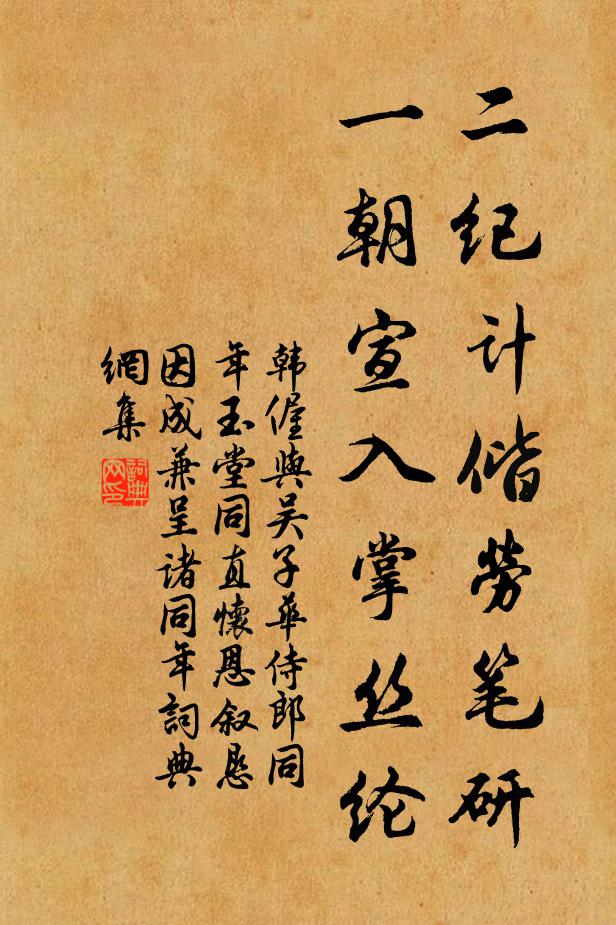 二纪计偕勞笔研
一朝宣入掌丝纶
韩偓與吴子華侍郎同
年玉堂同直懷恩叙恳
因成兼呈诸同年詞典
網集
詞典
网印